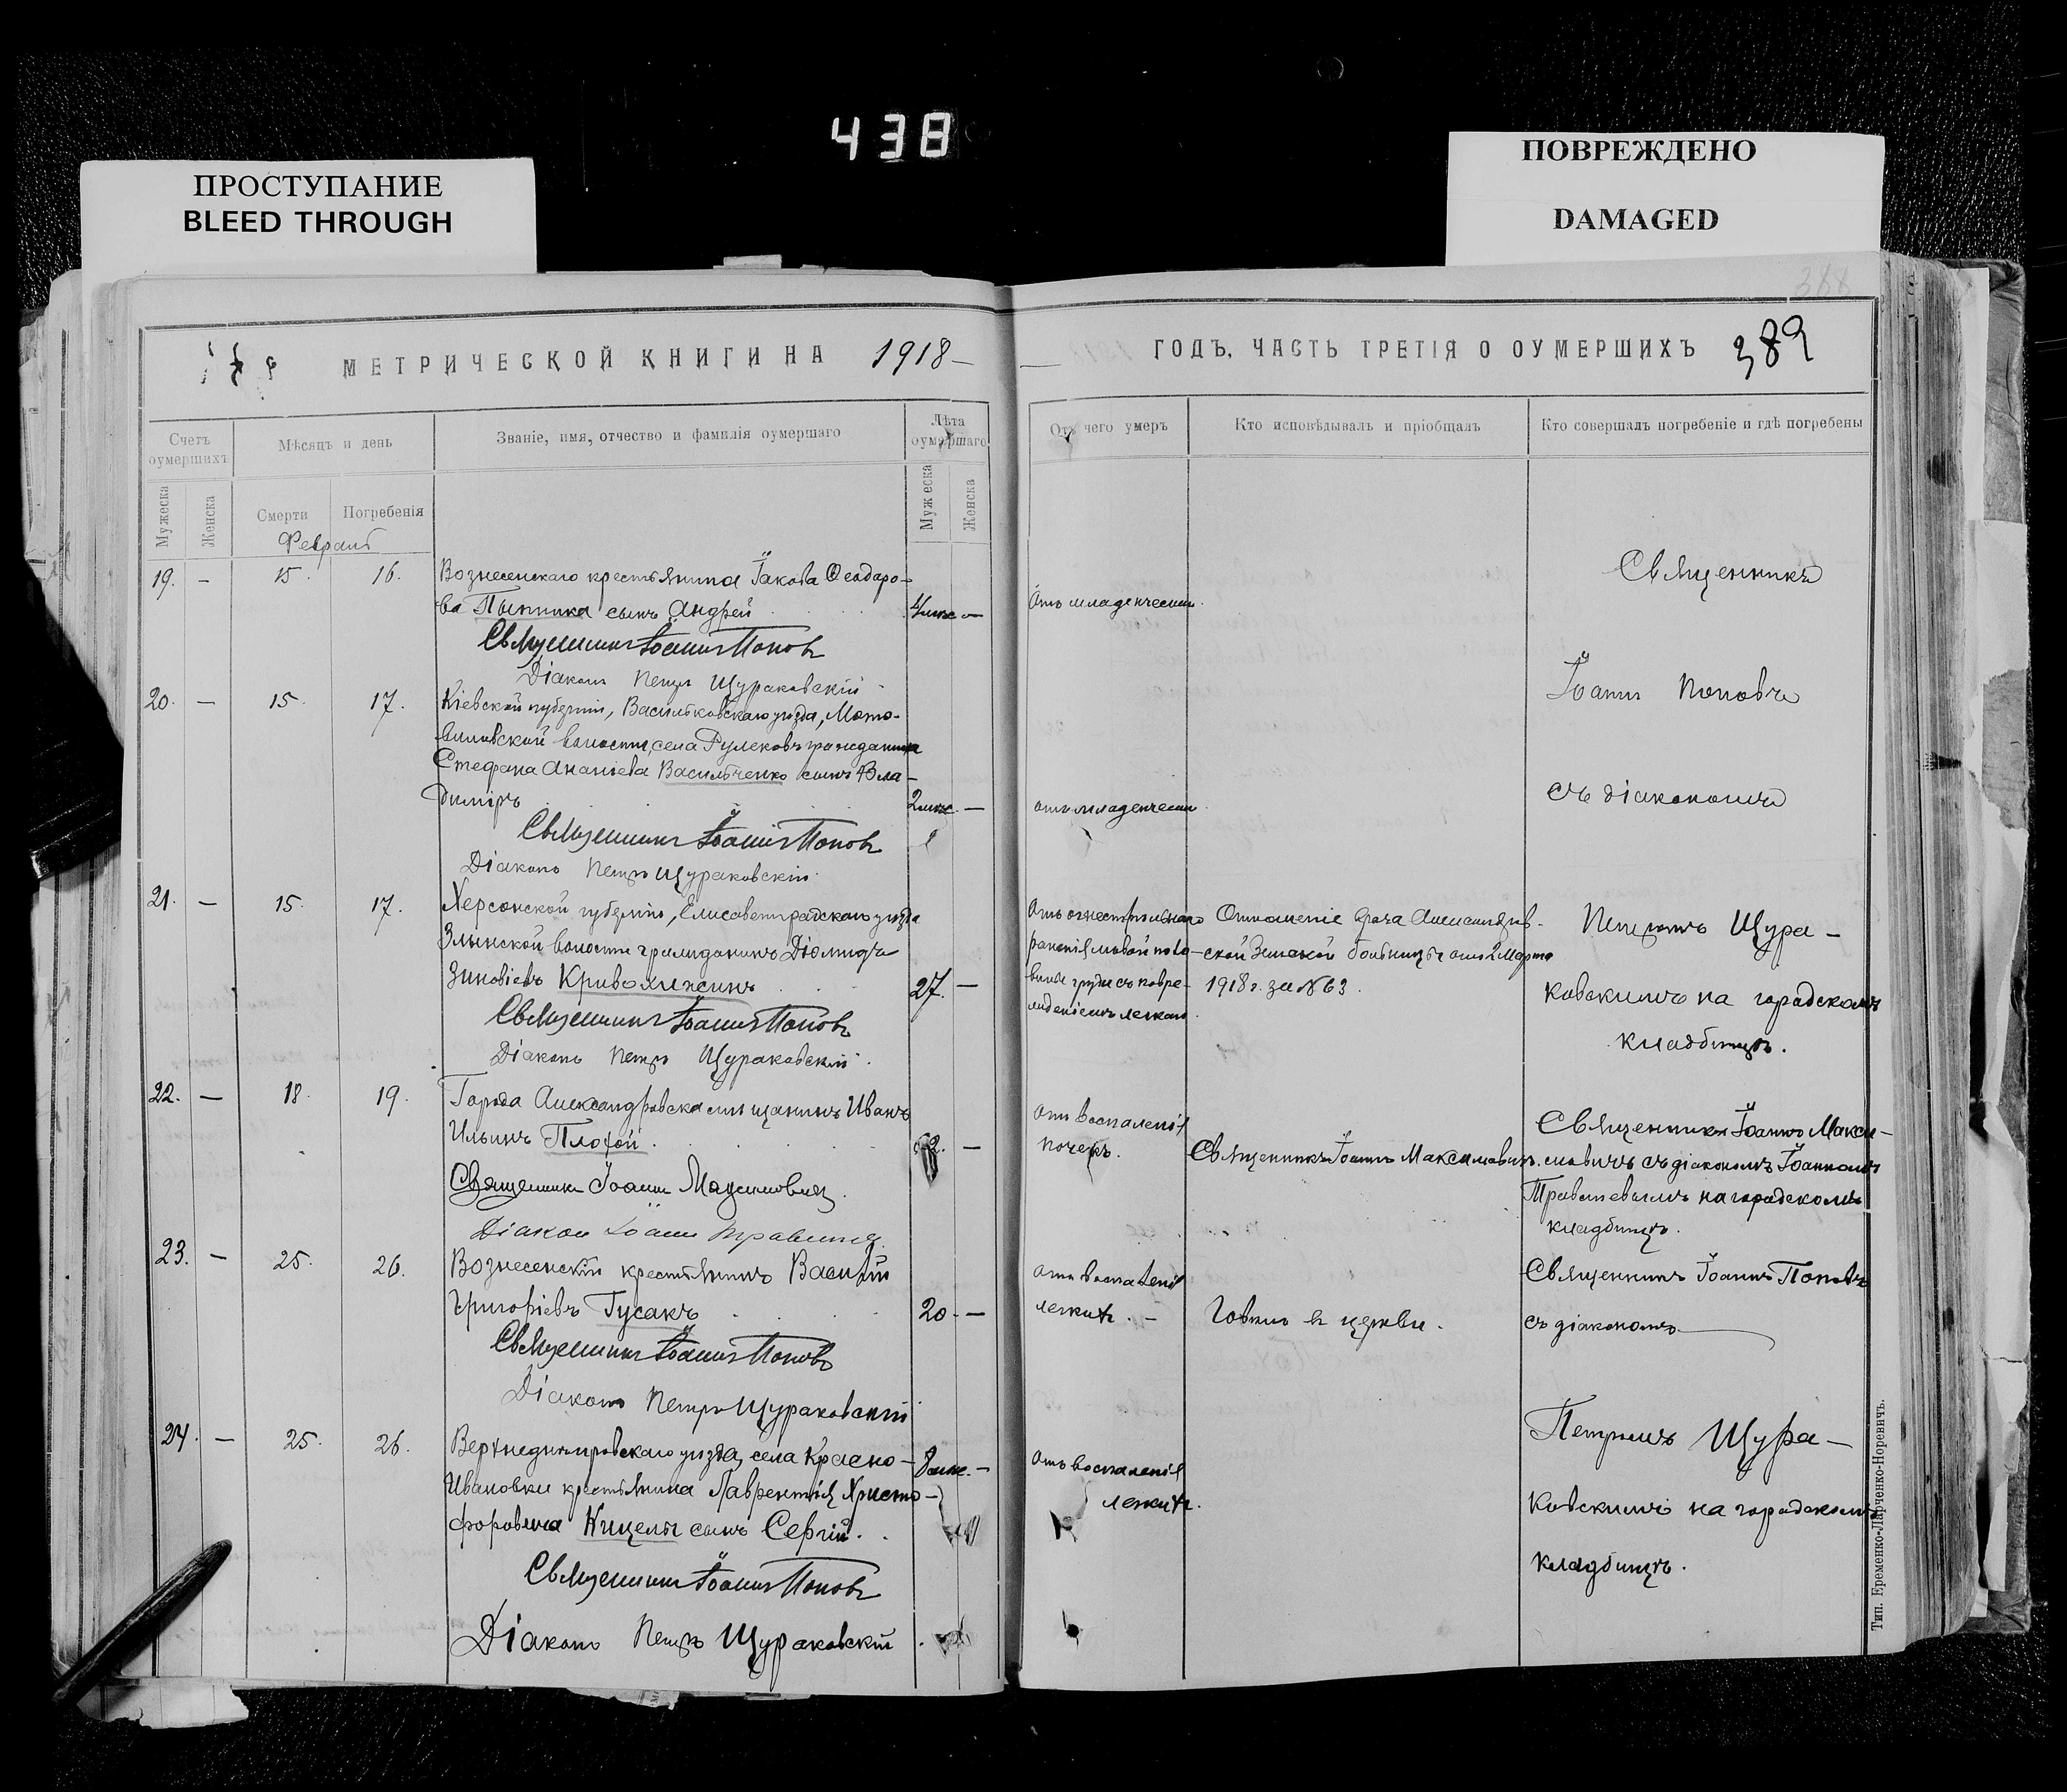 438
ПРОСТУПАНИЕ
BLEED THROUGH
ПОВРЕЖДЕНО
DAMAGED
МЕТРИЧЕСКОЙ КНИГИ НА 1918
ГОДЪ, ЧАСТЬ ТРЕТІЯ О ОУМЕРШИХЪ 389
Счетъ оумершихъ
Мѣсяцъ и день
Званіе, имя, отчество и фамилія оумершаго
Лѣта оумершаго
Отъ чего умеръ
Кто исповѣдывалъ и пріобщалъ
Кто совершалъ погребеніе и гдѣ погребены
Мужеска
Женска
Смерти
Погребенія
Мужеска
Женска
19. — 15. 16. Вознесенскаго крестьянина Іакова Ѳеодоро-
ва сынъ Андрей
Отъ младенческой
Священникъ Іоаннъ Поповъ
Діаконъ Петръ Щураковскій
20. — 15. 17. Кіевской губерніи, Васильковскаго уѣзда, Мото-
виловской волости, села гражданина
Стефана Ананіева Васильченко сынъ Вла-
диміръ
отъ младенческой
Священникъ Іоаннъ Поповъ
Діаконъ Петръ Щураковскій
21. — 15. 17. Херсонской губерніи, Елисаветградскаго уѣзда
Злынской волости гражданинъ
Зиновіевъ 27. —
Отъ огнестрѣльнаго
раненія лѣвой поло-
вины груди съ повре-
жденіемъ легкаго
Отношеніе врача Александров-
ской Земской больницы отъ 2 Марта
1918 г. за № 63.
Священникъ Іоаннъ Поповъ
Діаконъ Петръ Щураковскій
Священникъ
Іоаннъ Поповъ
съ діакономъ
Петромъ Щура-
ковскимъ на городскомъ
кладбищѣ.
22. — 18. 19. Города Александровска мѣщанинъ Иванъ
Ильинъ Плохой
Отъ воспаленія
почекъ.
Священникъ Іоаннъ Максимовичъ.
Священникъ Іоаннъ Макси-
мовичъ съ діакономъ Іоанномъ
на городскомъ
кладбищѣ.
Священникъ Іоаннъ Максимовичъ.
Діаконъ Іоаннъ
23. — 25. 26. Вознесенскій крестьянинъ Василій
Григоріевъ Гусакъ 20. —
Отъ воспаленія
легкихъ. —
Говѣлъ въ церкви.
Священникъ Іоаннъ Поповъ
съ діакономъ
Священникъ Іоаннъ Поповъ
Діаконъ Петръ Щураковскій
24. — 25. 26. Верхнеднѣпровскаго уѣзда, села Красно-
Ивановки крестьянина Лаврентія Христо-
форовича сынъ Сергій.
Отъ воспаленія
легкихъ.
Петромъ Щура-
ковскимъ на городскомъ
кладбищѣ.
Священникъ Іоаннъ Поповъ
Діаконъ Петръ Щураковскій
Тип. Еременко-Ларченко-Норевичъ.